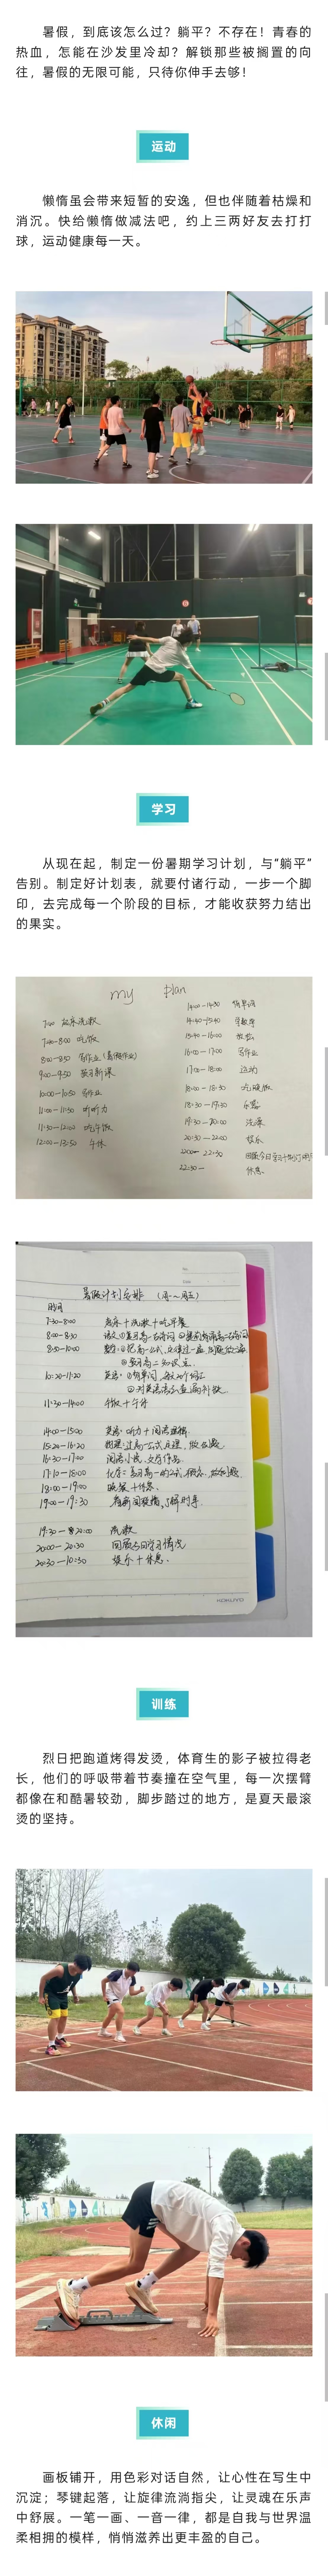 暑假，到底该怎么过？躺平？不存在！青春的
热血，怎能在沙发里冷却？解锁那些被搁置的向
往，暑假的无限可能，只待你伸手去够！
运动
懒惰虽会带来短暂的安逸，但也伴随着枯燥和
消沉。快给懒惰做减法吧，约上三两好友去打打
球，运动健康每一天。
学习
从现在起，制定一份暑期学习计划，与“躺平”
告别。制定好计划表，就要付诸行动，一步一个脚
印，去完成每一个阶段的目标，才能收获努力结出
的果实。
my plan
7:00 起床洗漱
7:00-8:00 吃饭
8:00-8:50 写作业(暑假作业)
9:00-9:50 预习新课
10:00-10:50 写作业
11:00-11:30 听听力
11:30-12:00 吃午饭
12:00-13:50 午休
14:00-14:30 背单词
14:40-15:40 学数学
15:40-16:00 休息
16:00-17:00 写作业
17:00-18:00 运动
18:00-18:30 吃晚饭
18:30-19:30 乐器
19:30-20:00 洗澡
20:30-22:00 娱乐
22:00-22:30
22:30-
休息.
暑假计划安排 (周一~周五)
时间
7:30-8:00 起床+洗漱+吃早餐
8:00-8:30
8:50-10:00
10:20-11:20
11:30-14:00 午饭+午休
14:00-15:00
15:20-16:20
16:30-17:00
17:10-18:00
18:00-19:00 晚餐+休息.
19:00-19:30
19:30-20:00 洗漱
20:00-20:30 回顾今日学习情况
20:30-10:30 娱乐+休息.
KOKUYO
训练
烈日把跑道烤得发烫，体育生的影子被拉得老
长，他们的呼吸带着节奏撞在空气里，每一次摆臂
都像在和酷暑较劲，脚步踏过的地方，是夏天最滚
烫的坚持。
休闲
画板铺开，用色彩对话自然，让心性在写生中
沉淀；琴键起落，让旋律流淌指尖，让灵魂在乐声
中舒展。一笔一画、一音一律，都是自我与世界温
柔相拥的模样，悄悄滋养出更丰盈的自己。